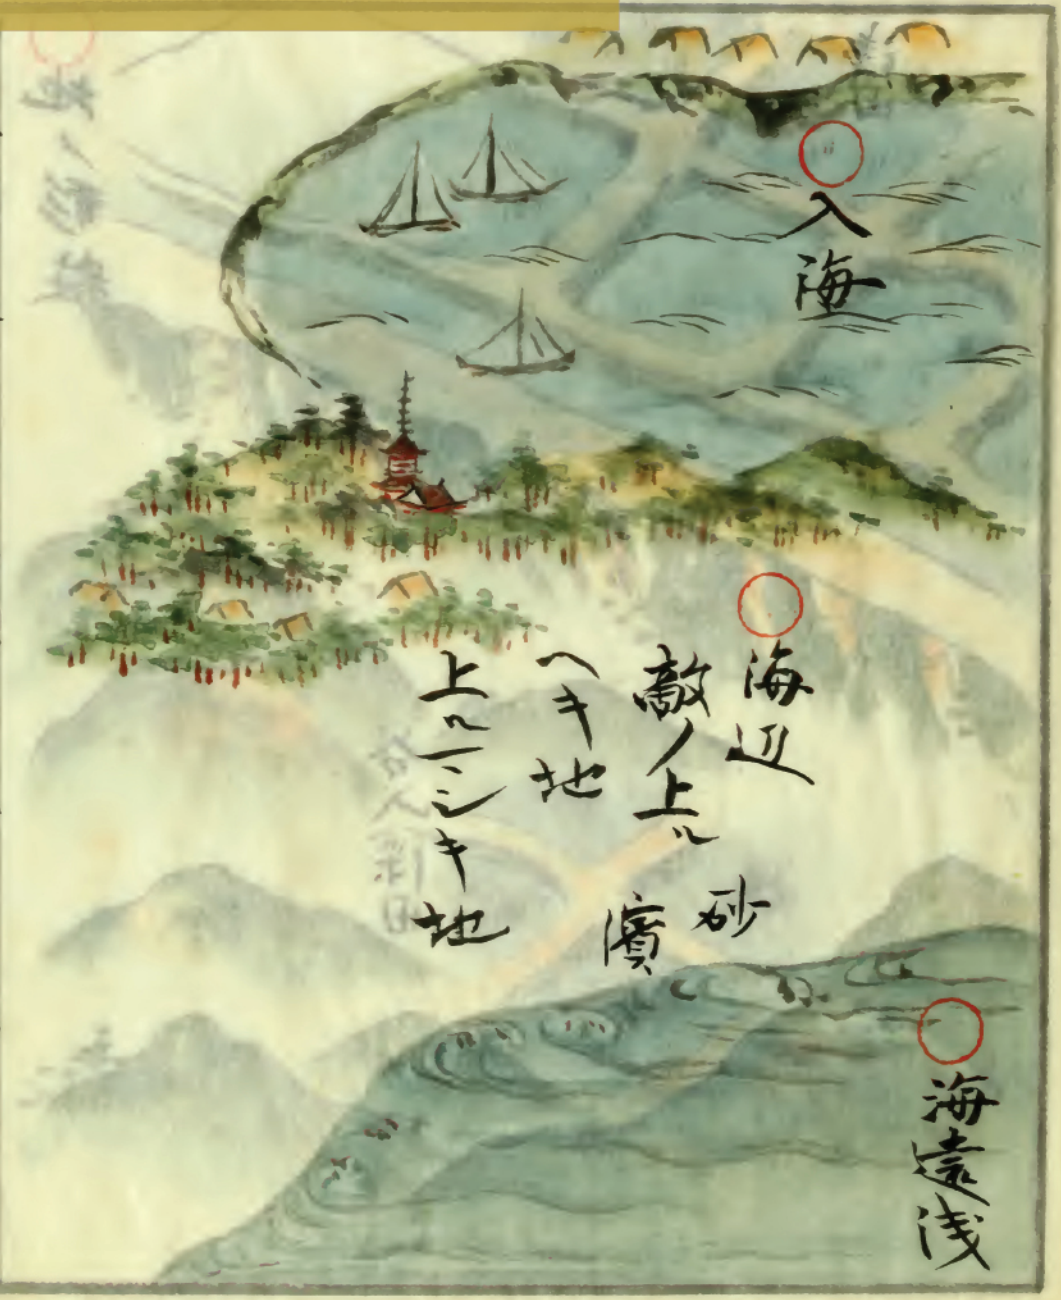 入海
海辺
敵ノ上ル
ヘキ地
上ルマシキ地
砂
濱
海遠浅